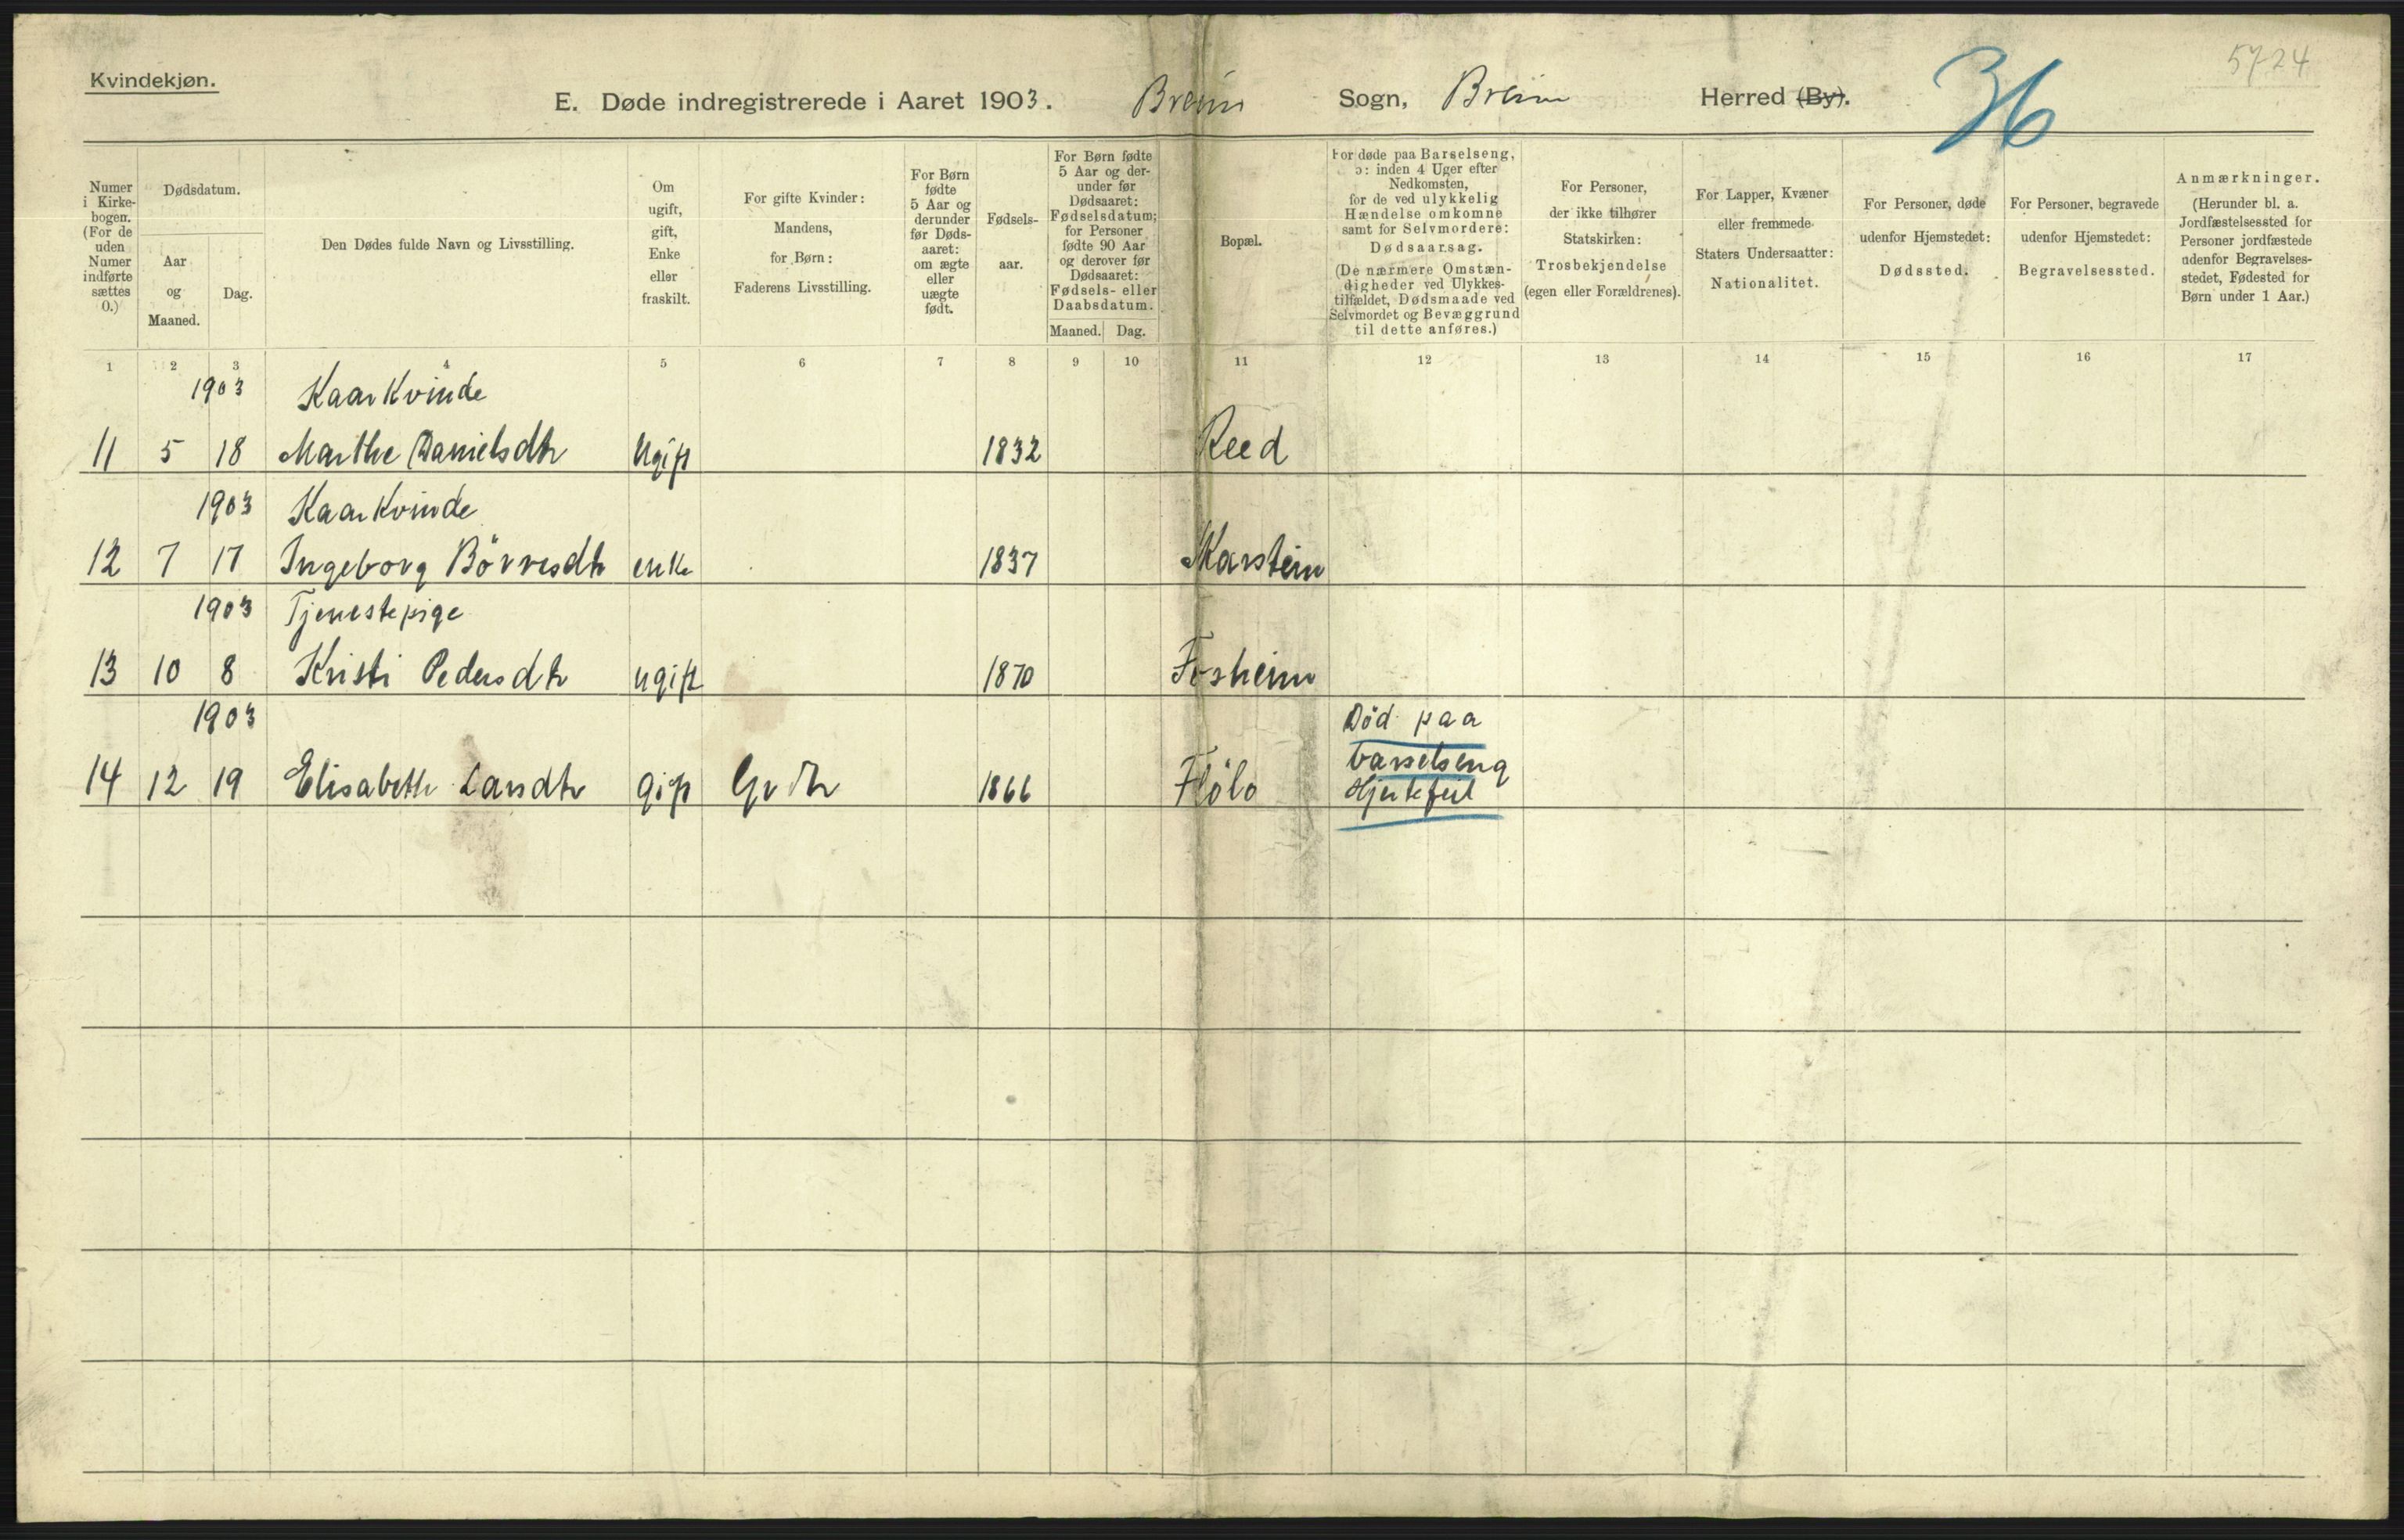 Kvindekjøn.
5724
36
E. Døde indregistrerede i Aaret 1903. Breim Sogn, Breim Herred (By).
Numer i Kirke- bogen. (For de uden Numer indførte sættes 0.)
Dødsdatum.
Aar og Maaned.
Dag.
Den Dødes fulde Navn og Livsstilling.
Om ugift, gift, Enke eller fraskilt.
For gifte Kvinder: Mandens, for Børn: Faderens Livsstilling.
For Børn fødte 5 Aar og derunder før Døds- aaret: om ægte eller uægte født.
Fødsels- aar.
For Børn fødte 5 Aar og der- under før Dødsaaret: Fødselsdatum; for Personer fødte 90 Aar og derover før Dødsaaret: Fødsels- eller Daabsdatum.
Maaned. Dag.
Bopæl.
For døde paa Barselseng, ɔ: inden 4 Uger efter Nedkomsten, for de ved ulykkelig Hændelse omkomne samt for Selvmordere: Dødsaarsag. (De nærmere Omstæn- digheder ved Ulykkes- tilfældet, Dødsmaade ved Selvmordet og Bevæggrund til dette anføres.)
For Personer, der ikke tilhører Statskirken: Trosbekjendelse (egen eller Forældrenes).
For Lapper, Kvæner eller fremmede Staters Undersaatter: Nationalitet.
For Personer, døde udenfor Hjemstedet: Dødssted.
For Personer, begravede udenfor Hjemstedet: Begravelsessted.
Anmærkninger. (Herunder bl. a. Jordfæstelsessted for Personer jordfæstede udenfor Begravelses- stedet, Fødested for Børn under 1 Aar.)
1 2 3 4 5 6 7 8 9 10 11 12 13 14 15 16 17
1903 Kaarkvinde
11 5 18 Marthe Danielsdtr Ugift 1832 Reed
1903 Kaarkvinde
12 7 17 Ingeborg Börresdtr enke 1837 Skarstein
1903 Tjenestepige
13 10 8 Kristi Pedersdtr ugift 1870 Fosheim
1903 Död paa
barselseng
14 12 19 Elisabeth Larsdtr gift 1866 Flölo Hjertefeil